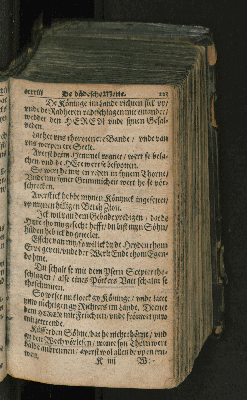 De düdesche Metie. 223
De Köninge im Lande richten sick vp/
vnde de Radheren radtschlagen mit einander/
wedder den HEREN vnde synen Gesal-
ueden.
Latet vns thoryten ere Bande / vnde van
vns werpen ere Seele.
Auerst de ym Hemmel wanet / wert se bela-
chen vnd de HEre wert se bespotten.
So wert he mit en reden in synem Thorne/
Vnde mit syner Grimmicheit wert he se vor-
schrecken.
Auerst ick hebbe mynen Köninck ingesettet/
vp mynen hilligen Berch Zion.
Ick wil van dem
dat de
HEre tho my gesecht hefft / du bist myn Söhn/
hüden heb ick dy geteelet.
Essche van my / so wil ick dy de Heyden thom
Erue geuen / vnde der Werlt Ende thom Egen-
dome.
Du schalt se mit dem Ysern Scepter tho-
schlagen / alse eines Pötters Vate schalt se
thoschmeten.
So weset nu kloeck gy Köninge / vnde latet
juw tüchtigen gy Richters im Lande. Denet
dem HEREN mit Früchten / vnde frouwet juw
mit beuende.
Küsset den Söhne / dat he nicht thörne / vnd
gy den Wech vorlesen / wente syn Thorn wert
balde anbernen / auerst wol allen de vp en tru-
wen.
K iiij W: